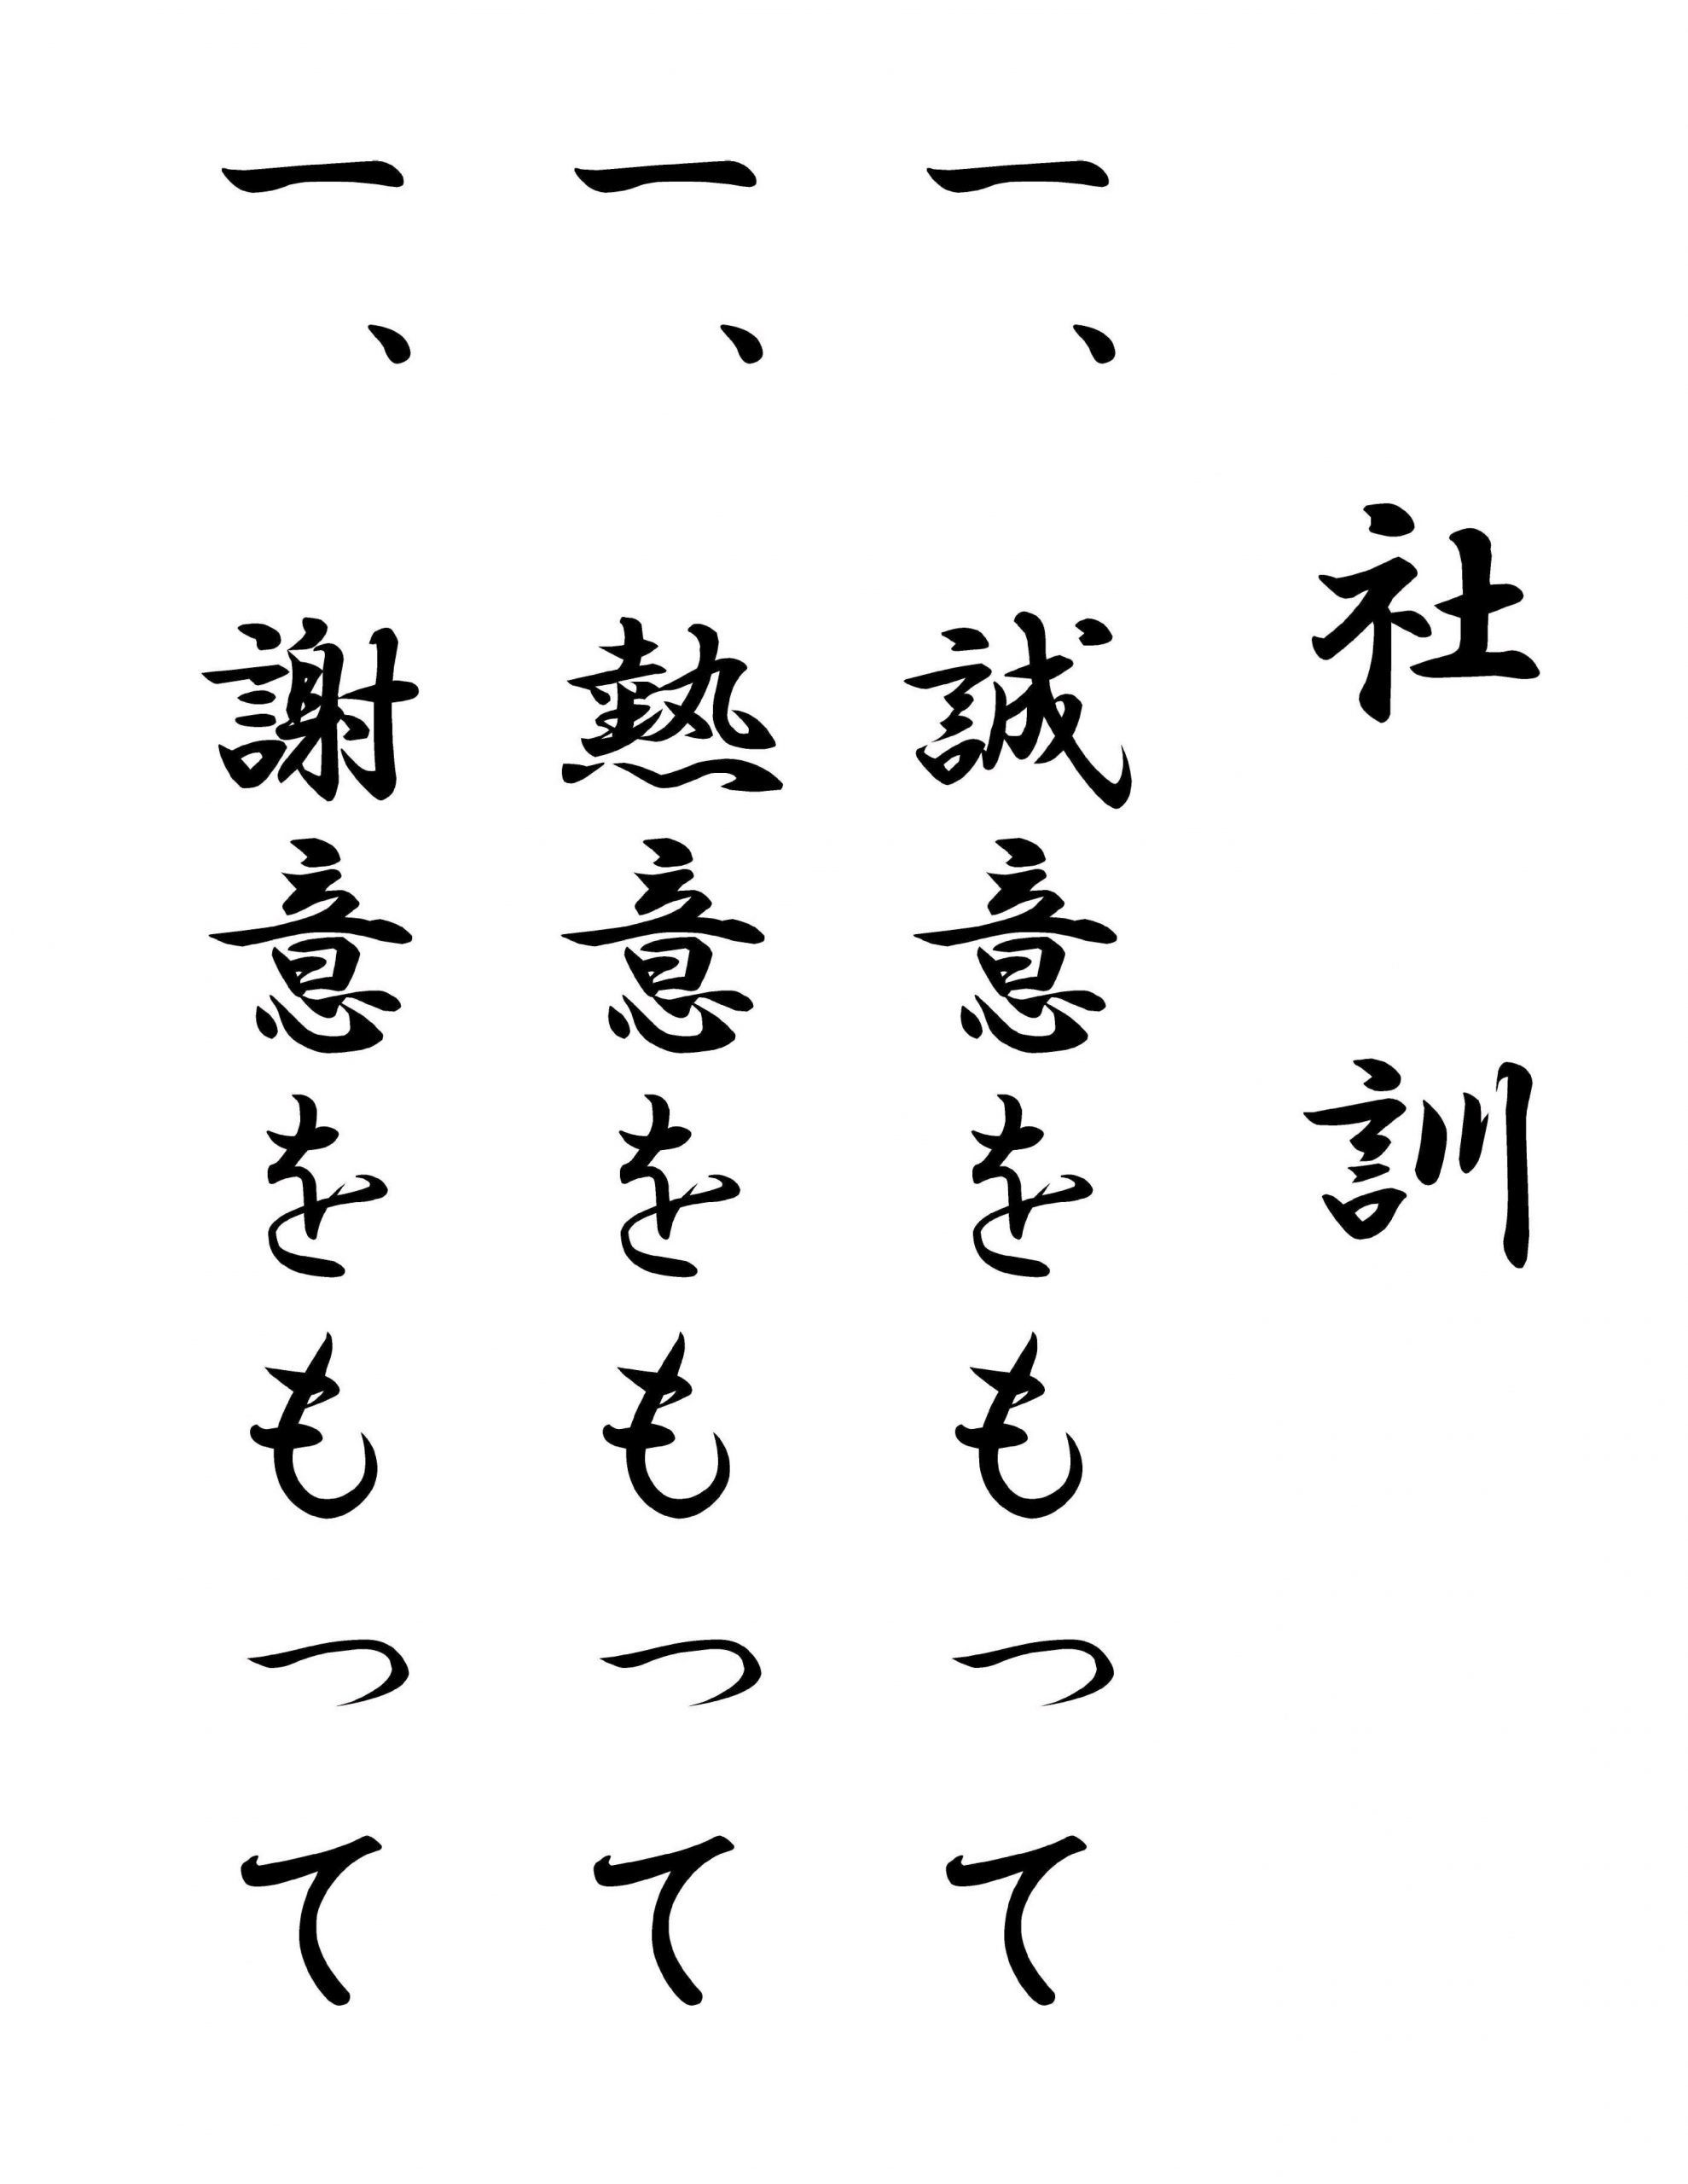 社訓
一、誠意をもって
一、熱意をもって
一、謝意をもって